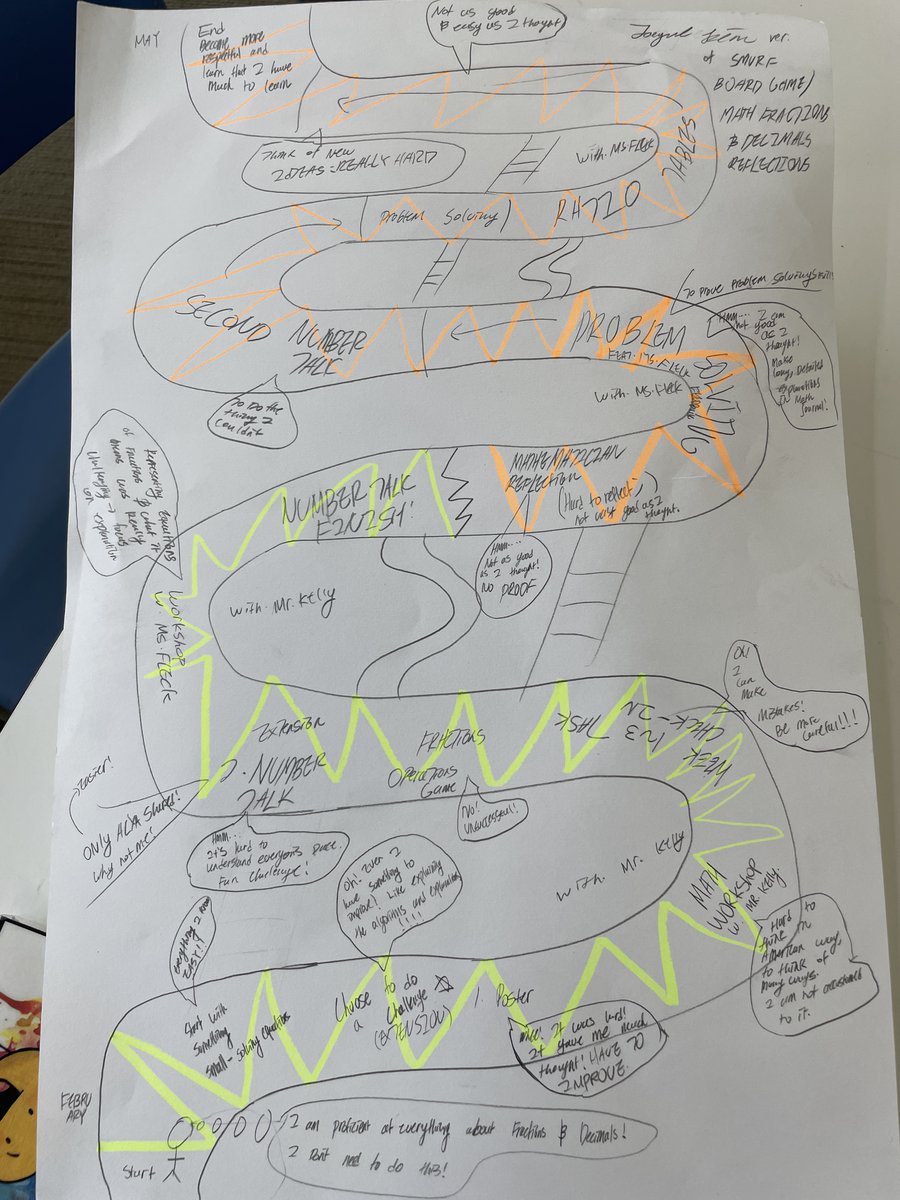 MAY
End
Become more
respectful and
learn that I have
much to learn
Not as good
& easy as I thought
ver.
of SMURF
BOARD GAME)
MATH FRACTIONS
& DECIMALS
REFLECTIONS
Think of New
IDEAS=REALLY HARD
With. MS.FLECK
TABLES
Problem Solving)
RATIO
SECOND NUMBER
TALK
To Do the
thing I
couldn't
PROBLEM
FEAT. MS. FLECK
SOLVING
To prove problem solving skill!
HMM.... I am
not good
as I
thought!
Make
long, Detailed
explanations
in Math
Journal!
With MS.FLECK
Representing Equations
of fractions & what it
means was really
challenging → focus
on explanation
NUMBER TALK
FINISH!
MATHEMATICIAN
REFLECTION
(Hard to reflect,
not very good as I
thought.
HMM....
Not as good
as I thought!
NO PROOF
WORKSHOP
W. MS.FLECK
With Mr. Kelly
EXTENSION
NUMBER
TALK
FRACTIONS
OPERATIONS
Game
1~3 TASK
WEEK
CHECK-IN
Oh!
I
can
Make
MISTAKES!
Be more
careful!!!
Easier!
Only ALYA Shared!
Why not me!
HMM...
It's hard to
understand everyone's pace.
Fun challenge!
NO!
Unsuccessful!
Oh! Even I
have something to
improve! Like explaining
the algorithms and explanation
!!!!
With. Mr. Kelly
MATH
WORKSHOP
W. MR.KELLY.
Hard to
think in
American way,
to think of
many ways.
I am not accustomed
to it.
Everything I know
EASY!!
Start with
something
small-solving equations
Choose to do
a challenge
(EXTENSION)
1. Poster
It was hard!
It gave me much
thought! HAVE TO
IMPROVE.
FEBRU
ARY
Start
I am proficient at everything about Fractions & Decimals!
I Don't need to do this!